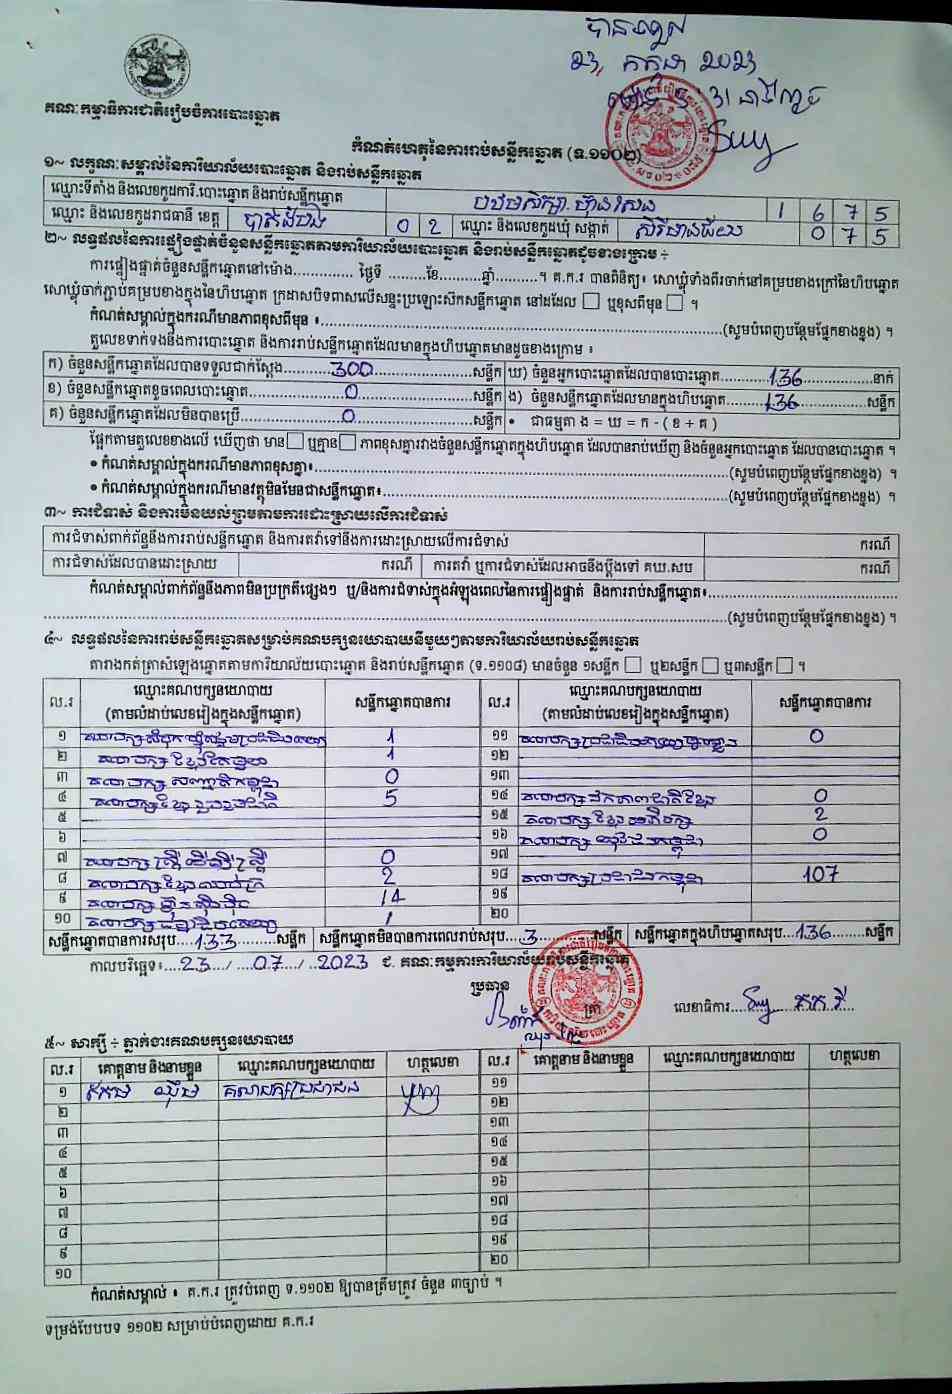 បានឃើញ
23, កក្កដា 2023
គណៈកម្មាធិការជាតិរៀបចំការបោះឆ្នោត
កំណត់ហេតុនៃការរាប់សន្លឹកឆ្នោត (ទ.១១០២)
១~ លក្ខណៈសម្គាល់នៃការិយាល័យបោះឆ្នោត និងរាប់សន្លឹកឆ្នោត
ឈ្មោះទីតាំង និងលេខកូដការិ.បោះឆ្នោត និងរាប់សន្លឹកឆ្នោត 1 6 7 5
ឈ្មោះ និងលេខកូដរាជធានី ខេត្ត បាត់ដំបង 0 2 ឈ្មោះ និងលេខកូដឃុំ សង្កាត់ 0 7 5
២~ លទ្ធផលនៃការផ្ទៀងផ្ទាត់ចំនួនសន្លឹកឆ្នោតតាមការិយាល័យបោះឆ្នោត និងរាប់សន្លឹកឆ្នោតដូចខាងក្រោម ÷
ការផ្ទៀងផ្ទាត់ចំនួនសន្លឹកឆ្នោតនៅម៉ោង.............. ថ្ងៃទី .........ខែ...........ឆ្នាំ...........។ គ.ក.រ បានពិនិត្យ៖ សោឃ្លុំទាំងពីរចាក់នៅគម្របខាងក្រៅនៃហិបឆ្នោត
សោឃ្លុំចាក់ភ្ជាប់គម្របខាងក្នុងនៃហិបឆ្នោត ក្រដាសបិទពាសលើសន្ទះប្រឡោះស៊ីកសន្លឹកឆ្នោត នៅដដែល ☐ ឬខុសពីមុន ☐ ។
កំណត់សម្គាល់ក្នុងករណីមានភាពខុសពីមុន ៖..........(សូមបំពេញបន្ថែមផ្នែកខាងខ្នង) ។
តួលេខទាក់ទងនឹងការបោះឆ្នោត និងការរាប់សន្លឹកឆ្នោតដែលមានក្នុងហិបឆ្នោតមានដូចខាងក្រោម ៖
ក) ចំនួនសន្លឹកឆ្នោតដែលបានទទួលជាក់ស្តែង.......300.......សន្លឹក ឃ) ចំនួនអ្នកបោះឆ្នោតដែលបានបោះឆ្នោត.......136.......នាក់
ខ) ចំនួនសន្លឹកឆ្នោតខូចពេលបោះឆ្នោត.......0.......សន្លឹក ង) ចំនួនសន្លឹកឆ្នោតដែលមានក្នុងហិបឆ្នោត.......136.......សន្លឹក
គ) ចំនួនសន្លឹកឆ្នោតដែលមិនបានប្រើ.......0.......សន្លឹក • ជាធម្មតា ង = ឃ = ក - ( ខ + គ )
ផ្អែកតាមតួលេខខាងលើ ឃើញថា មាន ☐ ឬគ្មាន ☐ ភាពខុសគ្នារវាងចំនួនសន្លឹកឆ្នោតក្នុងហិបឆ្នោត ដែលបានរាប់ឃើញ និងចំនួនអ្នកបោះឆ្នោត ដែលបានបោះឆ្នោត ។
• កំណត់សម្គាល់ក្នុងករណីមានភាពខុសគ្នា៖..........(សូមបំពេញបន្ថែមផ្នែកខាងខ្នង) ។
• កំណត់សម្គាល់ក្នុងករណីមានវត្ថុមិនមែនជាសន្លឹកឆ្នោត៖..........(សូមបំពេញបន្ថែមផ្នែកខាងខ្នង) ។
៣~ ការជំទាស់ និងការមិនយល់ព្រមតាមការដោះស្រាយលើការជំទាស់
ការជំទាស់ពាក់ព័ន្ធនឹងការរាប់សន្លឹកឆ្នោត និងការតវ៉ាទៅនឹងការដោះស្រាយលើការជំទាស់ ករណី
ការជំទាស់ដែលបានដោះស្រាយ ករណី ការតវ៉ា ឬការជំទាស់ដែលអាចនឹងប្តឹងទៅ គឃ.សប ករណី
កំណត់សម្គាល់ពាក់ព័ន្ធនឹងភាពមិនប្រក្រតីផ្សេងៗ ឬ/និងការជំទាស់ក្នុងអំឡុងពេលនៃការផ្ទៀងផ្ទាត់ និងការរាប់សន្លឹកឆ្នោត៖..........
..........(សូមបំពេញបន្ថែមផ្នែកខាងខ្នង) ។
៤~ លទ្ធផលនៃការរាប់សន្លឹកឆ្នោតសម្រាប់គណបក្សនយោបាយនីមួយៗតាមការិយាល័យរាប់សន្លឹកឆ្នោត
តារាងកត់ត្រាសំឡេងឆ្នោតតាមការិយាល័យបោះឆ្នោត និងរាប់សន្លឹកឆ្នោត (ទ.១១០៨) មានចំនួន ១សន្លឹក ☐ ឬ២សន្លឹក ☐ ឬ៣សន្លឹក ☐ ។
ល.រ ឈ្មោះគណបក្សនយោបាយ (តាមលំដាប់លេខរៀងក្នុងសន្លឹកឆ្នោត) សន្លឹកឆ្នោតបានការ ល.រ ឈ្មោះគណបក្សនយោបាយ (តាមលំដាប់លេខរៀងក្នុងសន្លឹកឆ្នោត) សន្លឹកឆ្នោតបានការ
១ គណបក្ស 1 ១១ គណបក្ស 0
២ គណបក្ស 1 ១២
៣ គណបក្ស 0 ១៣
៤ គណបក្ស 5 ១៤ គណបក្ស 0
៥ ១៥ គណបក្ស 2
៦ ១៦ គណបក្ស 0
៧ គណបក្ស 0 ១៧
៨ គណបក្ស 2 ១៨ គណបក្សប្រជាជនកម្ពុជា 107
៩ គណបក្សហ្វ៊ុនស៊ិនប៉ិច 14 ១៩
១០ គណបក្ស 1 ២០
សន្លឹកឆ្នោតបានការសរុប....133.......សន្លឹក សន្លឹកឆ្នោតមិនបានការពេលរាប់សរុប....3.......សន្លឹក សន្លឹកឆ្នោតក្នុងហិបឆ្នោតសរុប..136......សន្លឹក
កាលបរិច្ឆេទ៖....23..../....07..../...2023 ជ. គណៈកម្មការការិយាល័យរាប់សន្លឹកឆ្នោត
ប្រធាន
ត្រា
លេខាធិការ..........
៥~ សាក្សី ÷ ភ្នាក់ងារគណបក្សនយោបាយ
ល.រ គោត្តនាម និងនាមខ្លួន ឈ្មោះគណបក្សនយោបាយ ហត្ថលេខា ល.រ គោត្តនាម និងនាមខ្លួន ឈ្មោះគណបក្សនយោបាយ ហត្ថលេខា
១ គណបក្សប្រជាជន ១១
២ ១២
៣ ១៣
៤ ១៤
៥ ១៥
៦ ១៦
៧ ១៧
៨ ១៨
៩ ១៩
១០ ២០
កំណត់សម្គាល់ ៖ គ.ក.រ ត្រូវបំពេញ ទ.១១០២ ឱ្យបានត្រឹមត្រូវ ចំនួន ៣ច្បាប់ ។
ទម្រង់បែបបទ ១១០២ សម្រាប់បំពេញដោយ គ.ក.រ